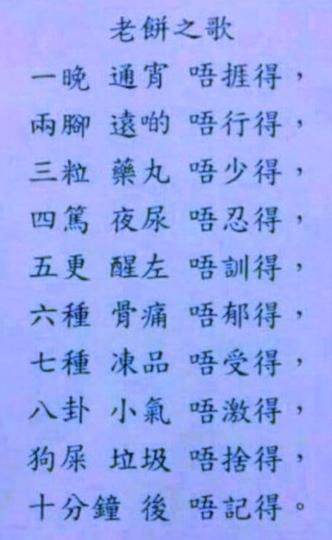 老餅之歌
一晚 通宵 唔捱得，
兩腳 遠啲 唔行得，
三粒 藥丸 唔少得，
四篤 夜尿 唔忍得，
五更 醒左 唔訓得，
六種 骨痛 唔郁得，
七種 凍品 唔受得，
八卦 小氣 唔激得，
狗屎 垃圾 唔捨得，
十分鐘 後 唔記得。